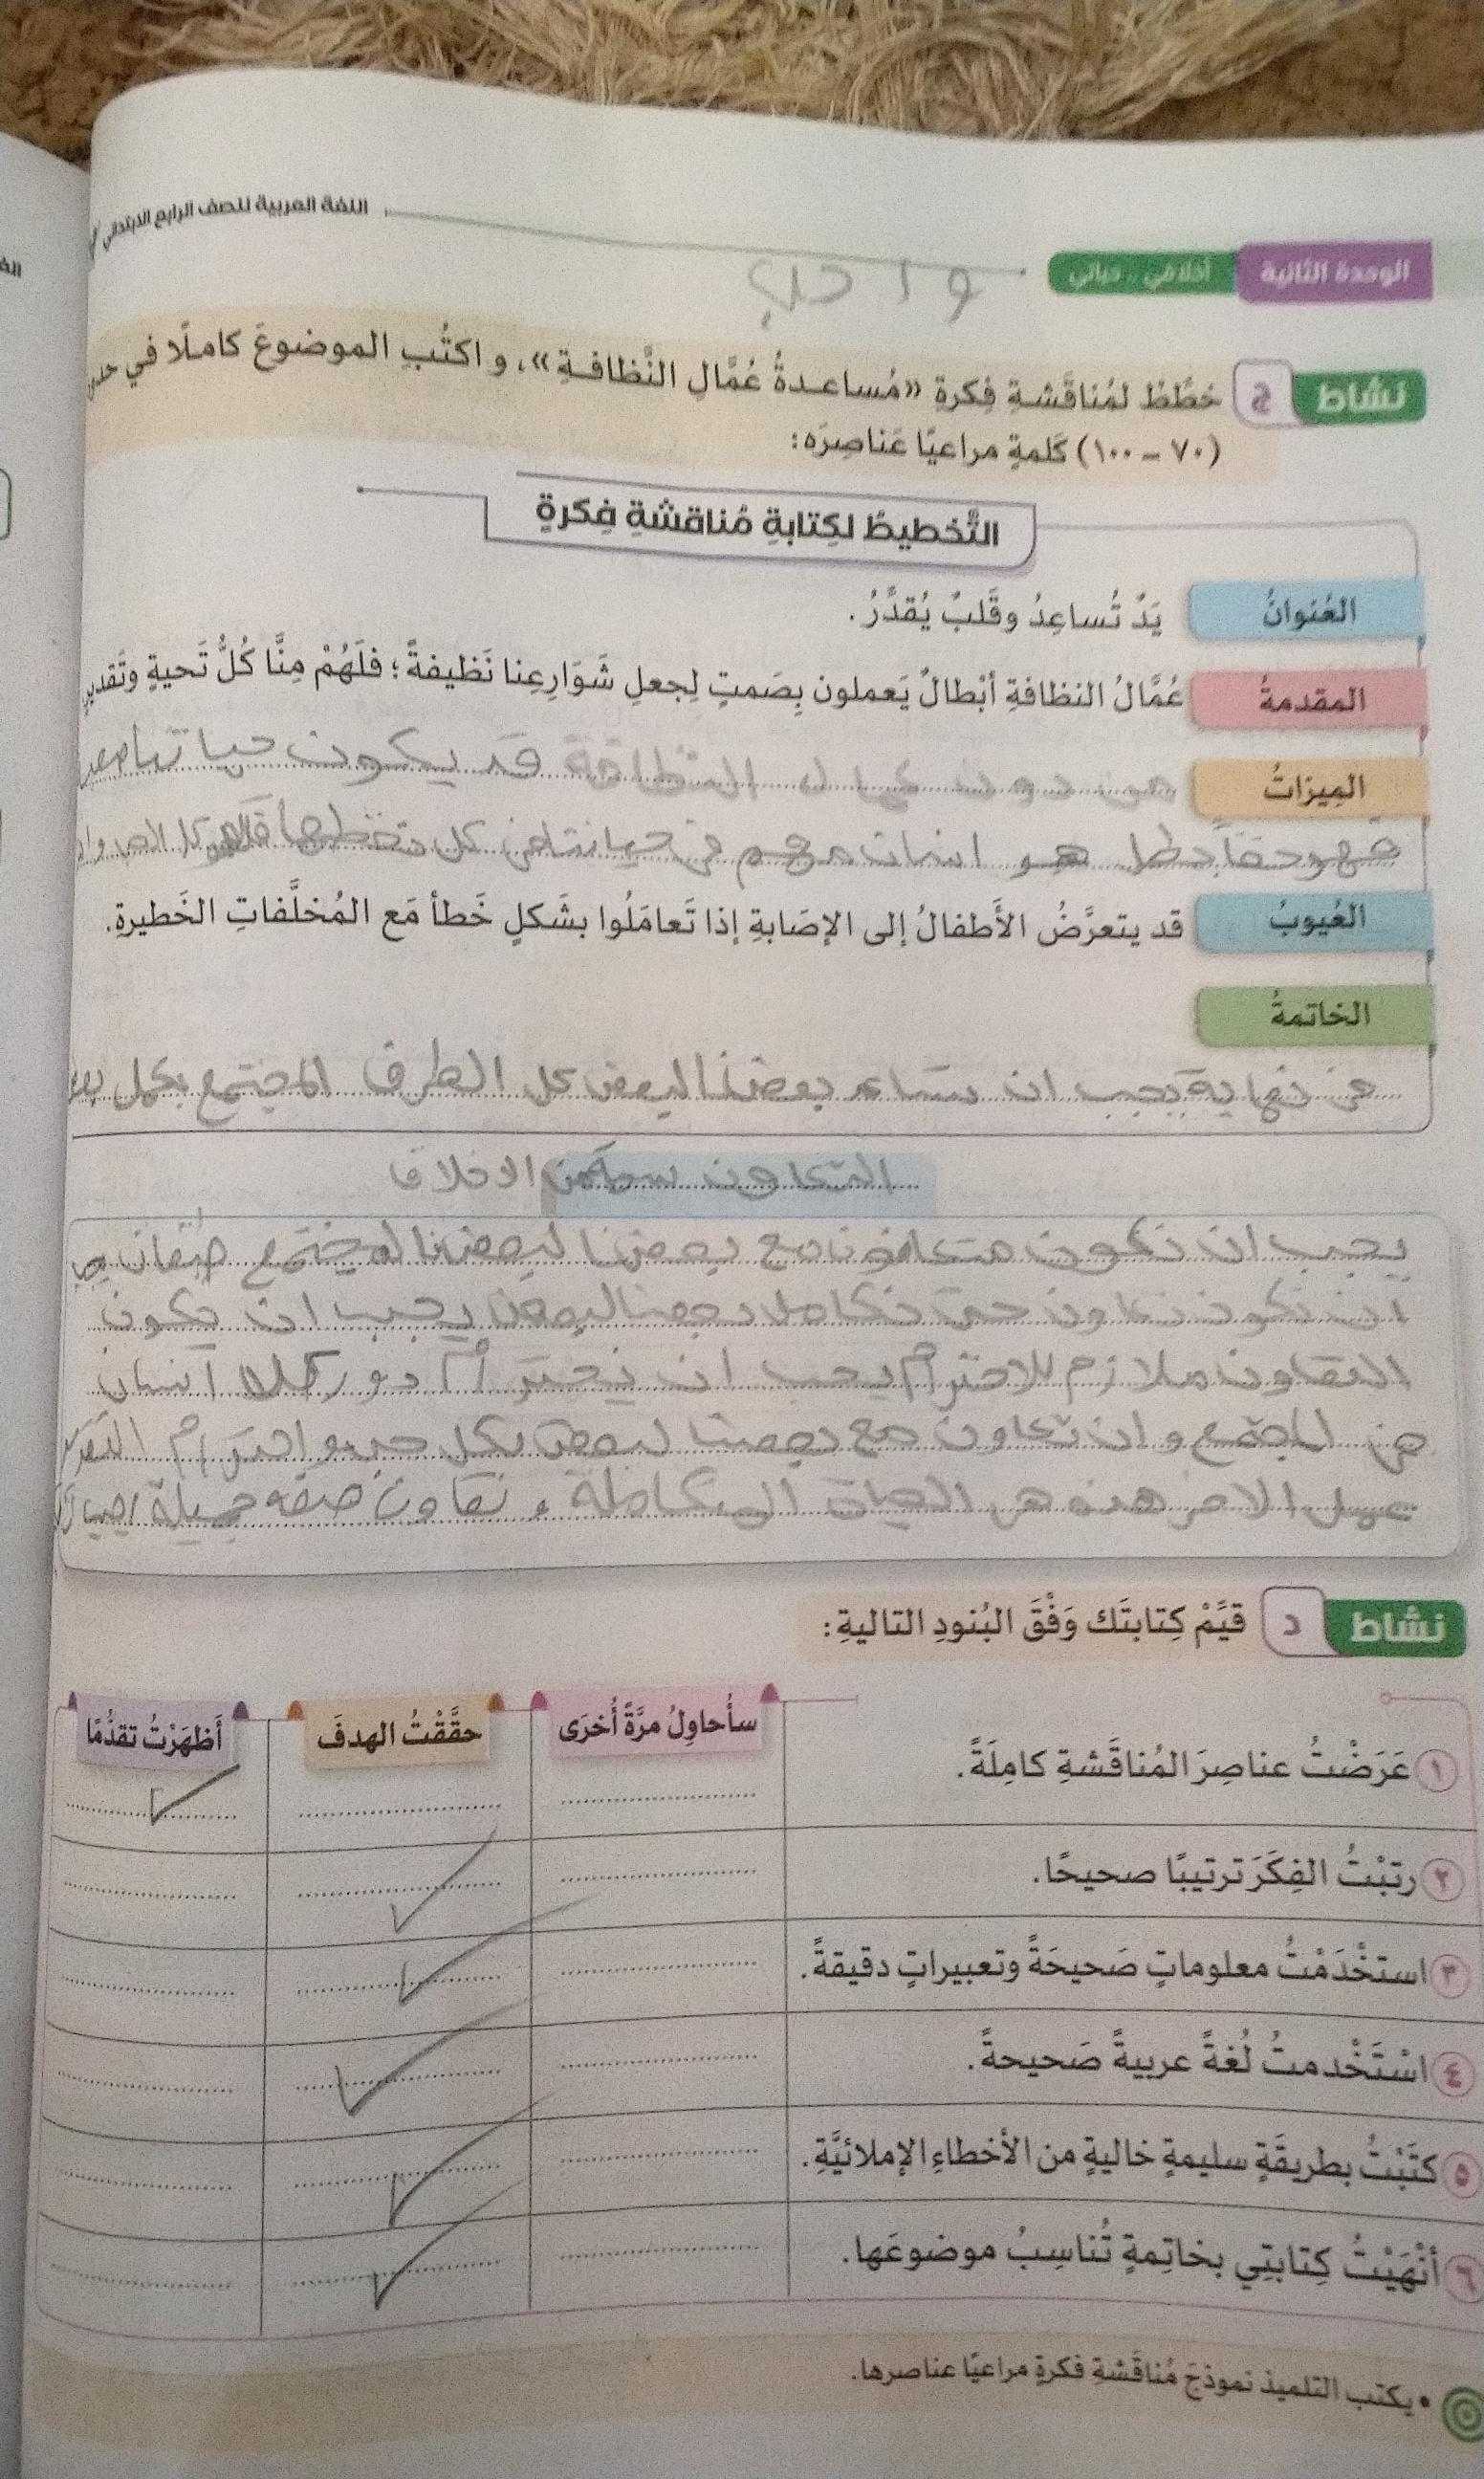 اللغة العربية للصف الرابع الابتدائي
الوحدة الثانية أخلاقي .. حياتي
واجب
نشاط ج خطِّطْ لمُناقَشةِ فِكرةِ «مُساعدةُ عُمَّالِ النَّظافةِ»، واكتُبِ الموضوعَ كاملًا في
(٧٠ – ١٠٠) كَلمةٍ مراعيًا عَناصِرَه:
التَّخطيطُ لكِتابةِ مُناقشةِ فِكرةٍ
العُنوانُ يَدٌ تُساعِدُ وقَلبٌ يُقدِّرُ.
المقدمةُ عُمَّالُ النظافةِ أبْطالٌ يَعملون بِصَمتٍ لِجعلِ شَوَارِعِنا نَظيفةً؛ فلَهُمْ مِنَّا كُلُّ تَحيةٍ وتَقديرٍ
الميزاتُ من دون عمال النظافة قد يكون حياتنا
هو انسان مهم في حياتنا كل
العُيوبُ قد يتعرَّضُ الأَطفالُ إلى الإصَابةِ إذا تَعامَلُوا بشَكلٍ خَطأ مَع المُخلَّفاتِ الخَطيرةِ.
الخاتمةُ
نهاية يجب ان بعضنا البعض كل الطرف المجتمع يكمل
التعاون من الاخلاق
يجب ان نكون مع بعضنا
ان نكون نتعاون بعضنا البعض يجب ان يكون
التعاون ملازم للاحترام يجب ان نحترم دور كل انسان
وان نتعاون مع بعضنا البعض بكل حب واحترام
عمل الاخر هذه هي الحياة المتكاملة و تعاون صفه جميلة
نشاط د قيِّمْ كِتابتَك وَفْقَ البُنودِ التاليةِ:
سأُحاوِلُ مرَّةً أُخرَى حقَّقْتُ الهدفَ أَظهَرْتُ تقدُّمًا
١ عَرَضْتُ عناصِرَ المُناقَشةِ كامِلَةً.
٢ رتبْتُ الفِكَرَ ترتيبًا صحيحًا.
٣ استخْدَمْتُ معلوماتٍ صَحيحَةً وتعبيراتٍ دقيقةً.
٤ اسْتَخْدمتُ لُغةً عربيةً صَحيحةً.
٥ كتَبْتُ بطريقَةٍ سليمةٍ خاليةٍ من الأخطاءِ الإملائيَّةِ.
٦ أنْهَيْتُ كِتابتِي بخاتِمةٍ تُناسِبُ موضوعَها.
• يكتب التلميذ نموذجَ مُناقَشةِ فكرةٍ مراعيًا عناصرها.